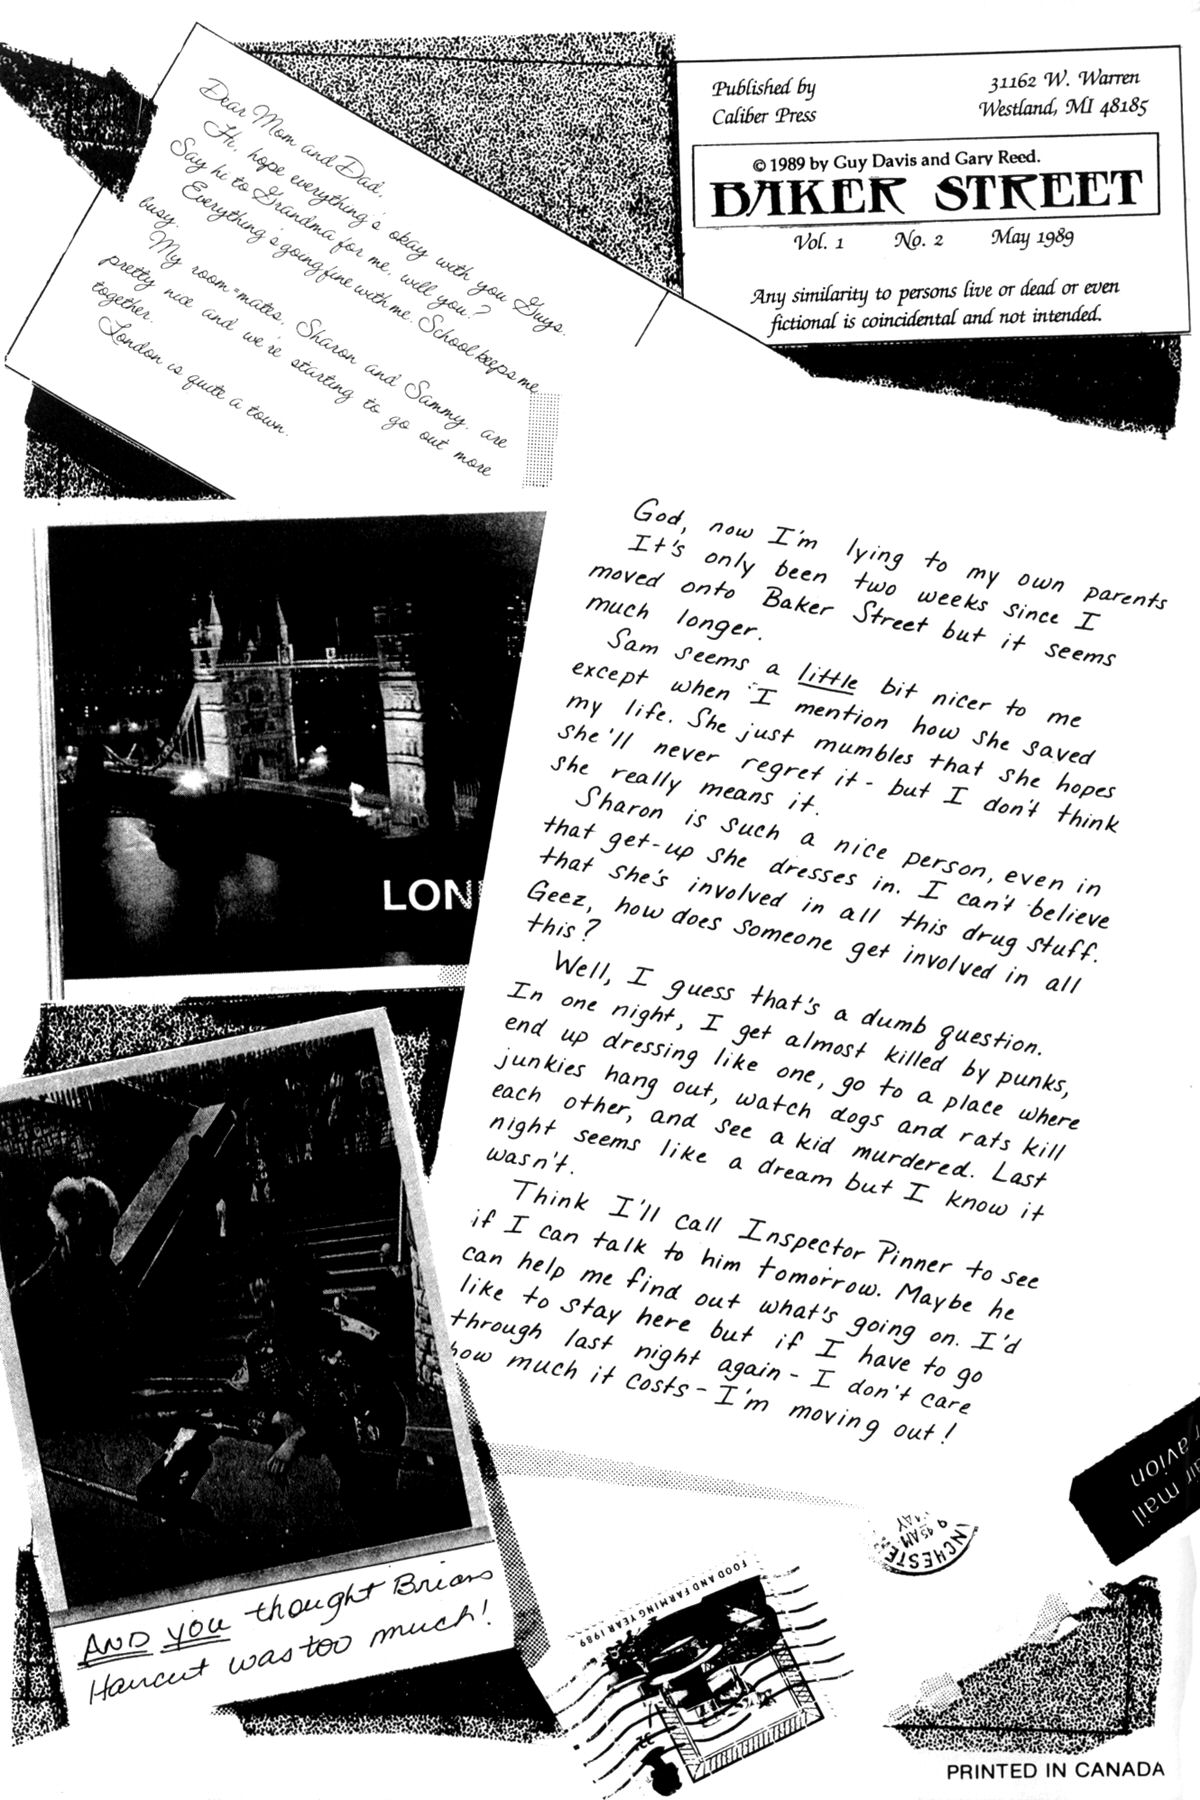 Dear Mom and Dad,
Hi, hope everything's okay with you guys.
Say hi to Grandma for me, will you?
Everything's going fine with me. School keeps me
busy.
My room-mates, Sharon and Sammy, are
pretty nice and we're starting to go out more
together.
London is quite a town.
Published by
Caliber Press
31162 W. Warren
Westland, MI 48185
© 1989 by Guy Davis and Gary Reed.
BAKER STREET
Vol. 1 No. 2 May 1989
Any similarity to persons live or dead or even
fictional is coincidental and not intended.
God, now I'm lying to my own parents
It's only been two weeks since I
moved onto Baker Street but it seems
much longer.
Sam seems a little bit nicer to me
except when I mention how she saved
my life. She just mumbles that she hopes
she'll never regret it - but I don't think
she really means it.
Sharon is such a nice person, even in
that get-up she dresses in. I can't believe
that she's involved in all this drug stuff.
Geez, how does someone get involved in all
this?
Well, I guess that's a dumb question.
In one night, I get almost killed by punks,
end up dressing like one, go to a place where
junkies hang out, watch dogs and rats kill
each other, and see a kid murdered. Last
night seems like a dream but I know it
wasn't.
Think I'll call Inspector Pinner to see
if I can talk to him tomorrow. Maybe he
can help me find out what's going on. I'd
like to stay here but if I have to go
through last night again - I don't care
how much it costs - I'm moving out!
LON
AND YOU thought Brians
Haircut was too much!
air mail
r avion
NCHESTE
9 45AM
MAY
FOOD AND FARMING YEAR 1989
PRINTED IN CANADA